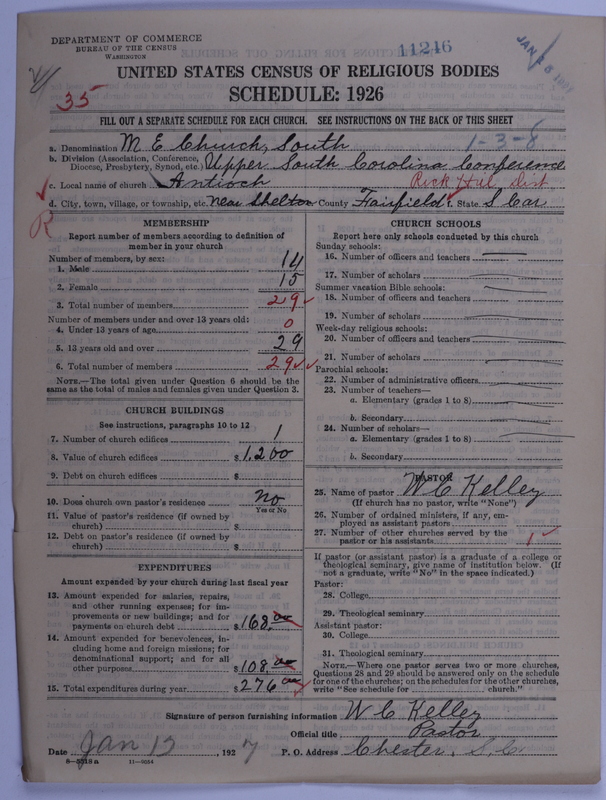 DEPARTMENT OF COMMERCE
BUREAU OF THE CENSUS
WASHINGTON
11246
UNITED STATES CENSUS OF RELIGIOUS BODIES
SCHEDULE: 1926
35
FILL OUT A SEPARATE SCHEDULE FOR EACH CHURCH. SEE INSTRUCTIONS ON THE BACK OF THIS SHEET
a. Denomination M E Church, South 1-3-8
b. Division (Association, Conference, Diocese, Presbytery, Synod, etc.) Upper South Carolina Conference
c. Local name of church Antioch Rock Hill Dist
d. City, town, village, or township, etc. near Shelton County Fairfield State S Car
R
MEMBERSHIP
Report number of members according to definition of member in your church
Number of members, by sex:
1. Male 14
2. Female 15
3. Total number of members 29
Number of members under and over 13 years old:
4. Under 13 years of age 0
5. 13 years old and over 29
6. Total number of members 29
NOTE.—The total given under Question 6 should be the same as the total of males and females given under Question 3.
CHURCH BUILDINGS
See instructions, paragraphs 10 to 12
7. Number of church edifices 1
8. Value of church edifices $1,200
9. Debt on church edifices $
10. Does church own pastor's residence No
Yes or No
11. Value of pastor's residence (if owned by church) $
12. Debt on pastor's residence (if owned by church) $
EXPENDITURES
Amount expended by your church during last fiscal year
13. Amount expended for salaries, repairs, and other running expenses; for improvements or new buildings; and for payments on church debt $168.00
14. Amount expended for benevolences, including home and foreign missions; for denominational support; and for all other purposes $108.00
15. Total expenditures during year $276.00
CHURCH SCHOOLS
Report here only schools conducted by this church
Sunday schools:
16. Number of officers and teachers
17. Number of scholars
Summer vacation Bible schools:
18. Number of officers and teachers
19. Number of scholars
Week-day religious schools:
20. Number of officers and teachers
21. Number of scholars
Parochial schools:
22. Number of administrative officers
23. Number of teachers—
a. Elementary (grades 1 to 8)
b. Secondary
24. Number of scholars—
a. Elementary (grades 1 to 8)
b. Secondary
PASTOR
25. Name of pastor W C Kelley
(If church has no pastor, write "None")
26. Number of ordained ministers, if any, employed as assistant pastors
27. Number of other churches served by the pastor or his assistants 1
If pastor (or assistant pastor) is a graduate of a college or theological seminary, give name of institution below. (If not a graduate, write "No" in the space indicated.)
Pastor:
28. College
29. Theological seminary
Assistant pastor:
30. College
31. Theological seminary
NOTE.—Where one pastor serves two or more churches, Questions 28 and 29 should be answered only on the schedule for one of the churches; on the schedules for the other churches, write "See schedule for church."
Signature of person furnishing information W C Kelley
Official title Pastor
Date Jan 13, 1927 P. O. Address Chester, S.C.
8—5518 a 11—9054